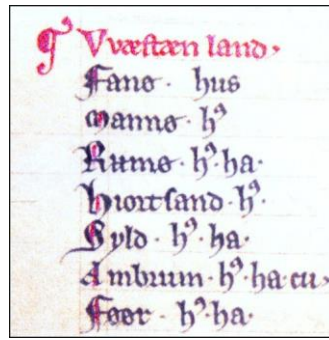 ¶ Vvæstæn land.
Fanø · hus
Mannø · hꝰ
Rumø · hꝰ · ha ·
Hiortsand · hꝰ ·
Syld · hꝰ · ha ·
Ambrum · hꝰ · ha · cu ·
Føør · hꝰ · ha ·